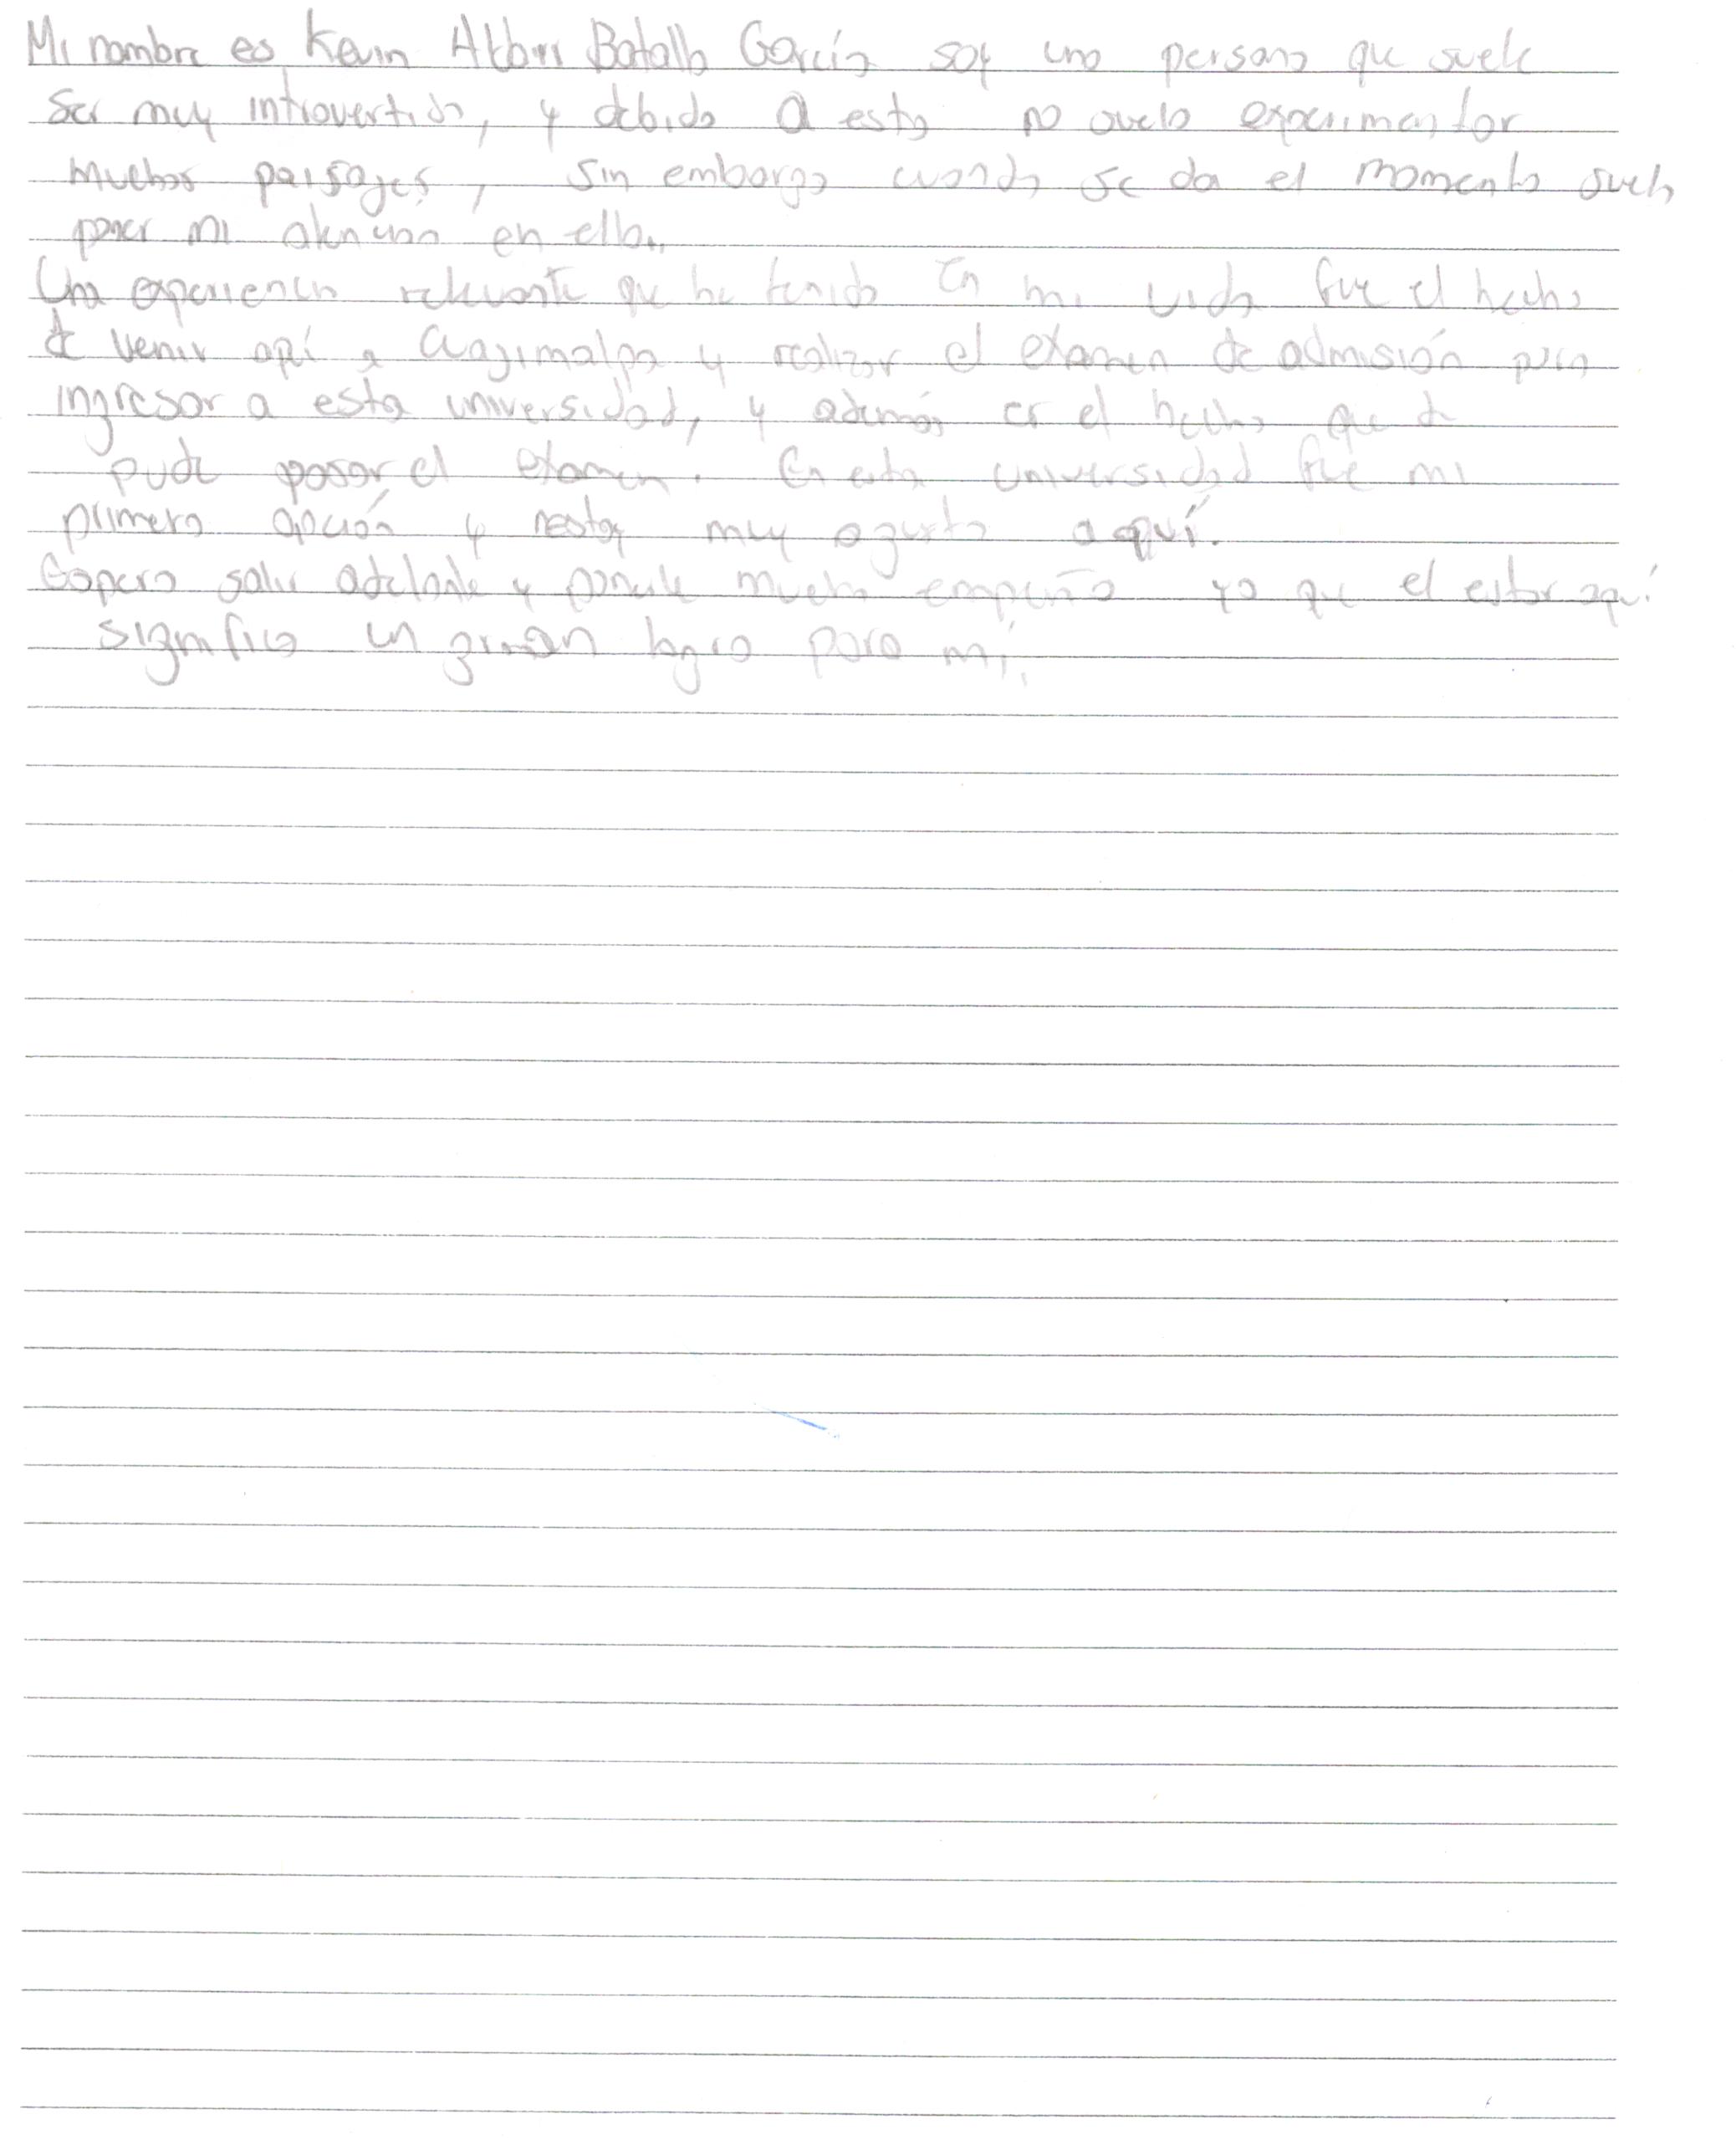 Mi nombre es Kevin Batalla García soy una persona que suele
ser muy introvertida, y debido a esto no suelo experimentar
muchos paisajes, sin embargo cuando se da el momento suelo
poner mi atención en ello.
Una experiencia relevante que he tenido en mi vida fue el hecho
de venir aquí a Cuajimalpa y realizar el examen de admisión para
ingresar a esta universidad, y además es el hecho que de
pude pasar el examen. En esta universidad fue mi
primera opción y estoy muy agusto aquí.
Espero salir adelante y ponerle mucho empeño ya que el estar aquí
significa un gran logro para mí.